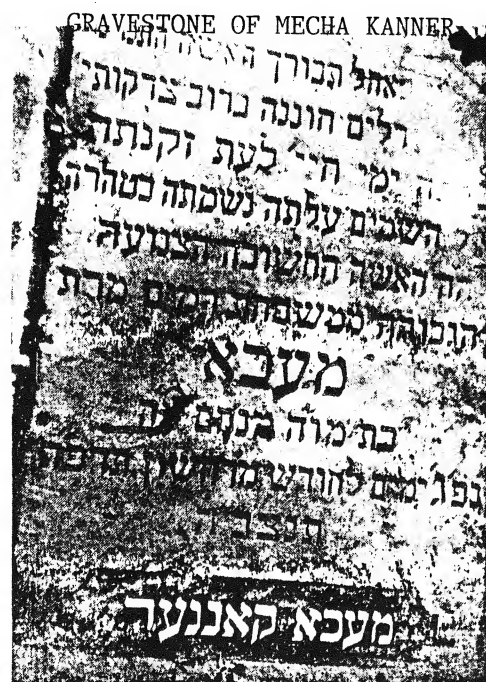 GRAVESTONE OF MECHA KANNER
אהל תבורך האשה
דלים חוננה ברוב צדקותי
ימי חיי לעת זקנתה
השמים עלתה נשמתה בטהרה
ה האשה החשובה הצנועה
ממשפחת רמים מרת
מעכא
בת מוה מנחם
ימים לחודש מרחשון
תנצב״ה
מעכא קאננער